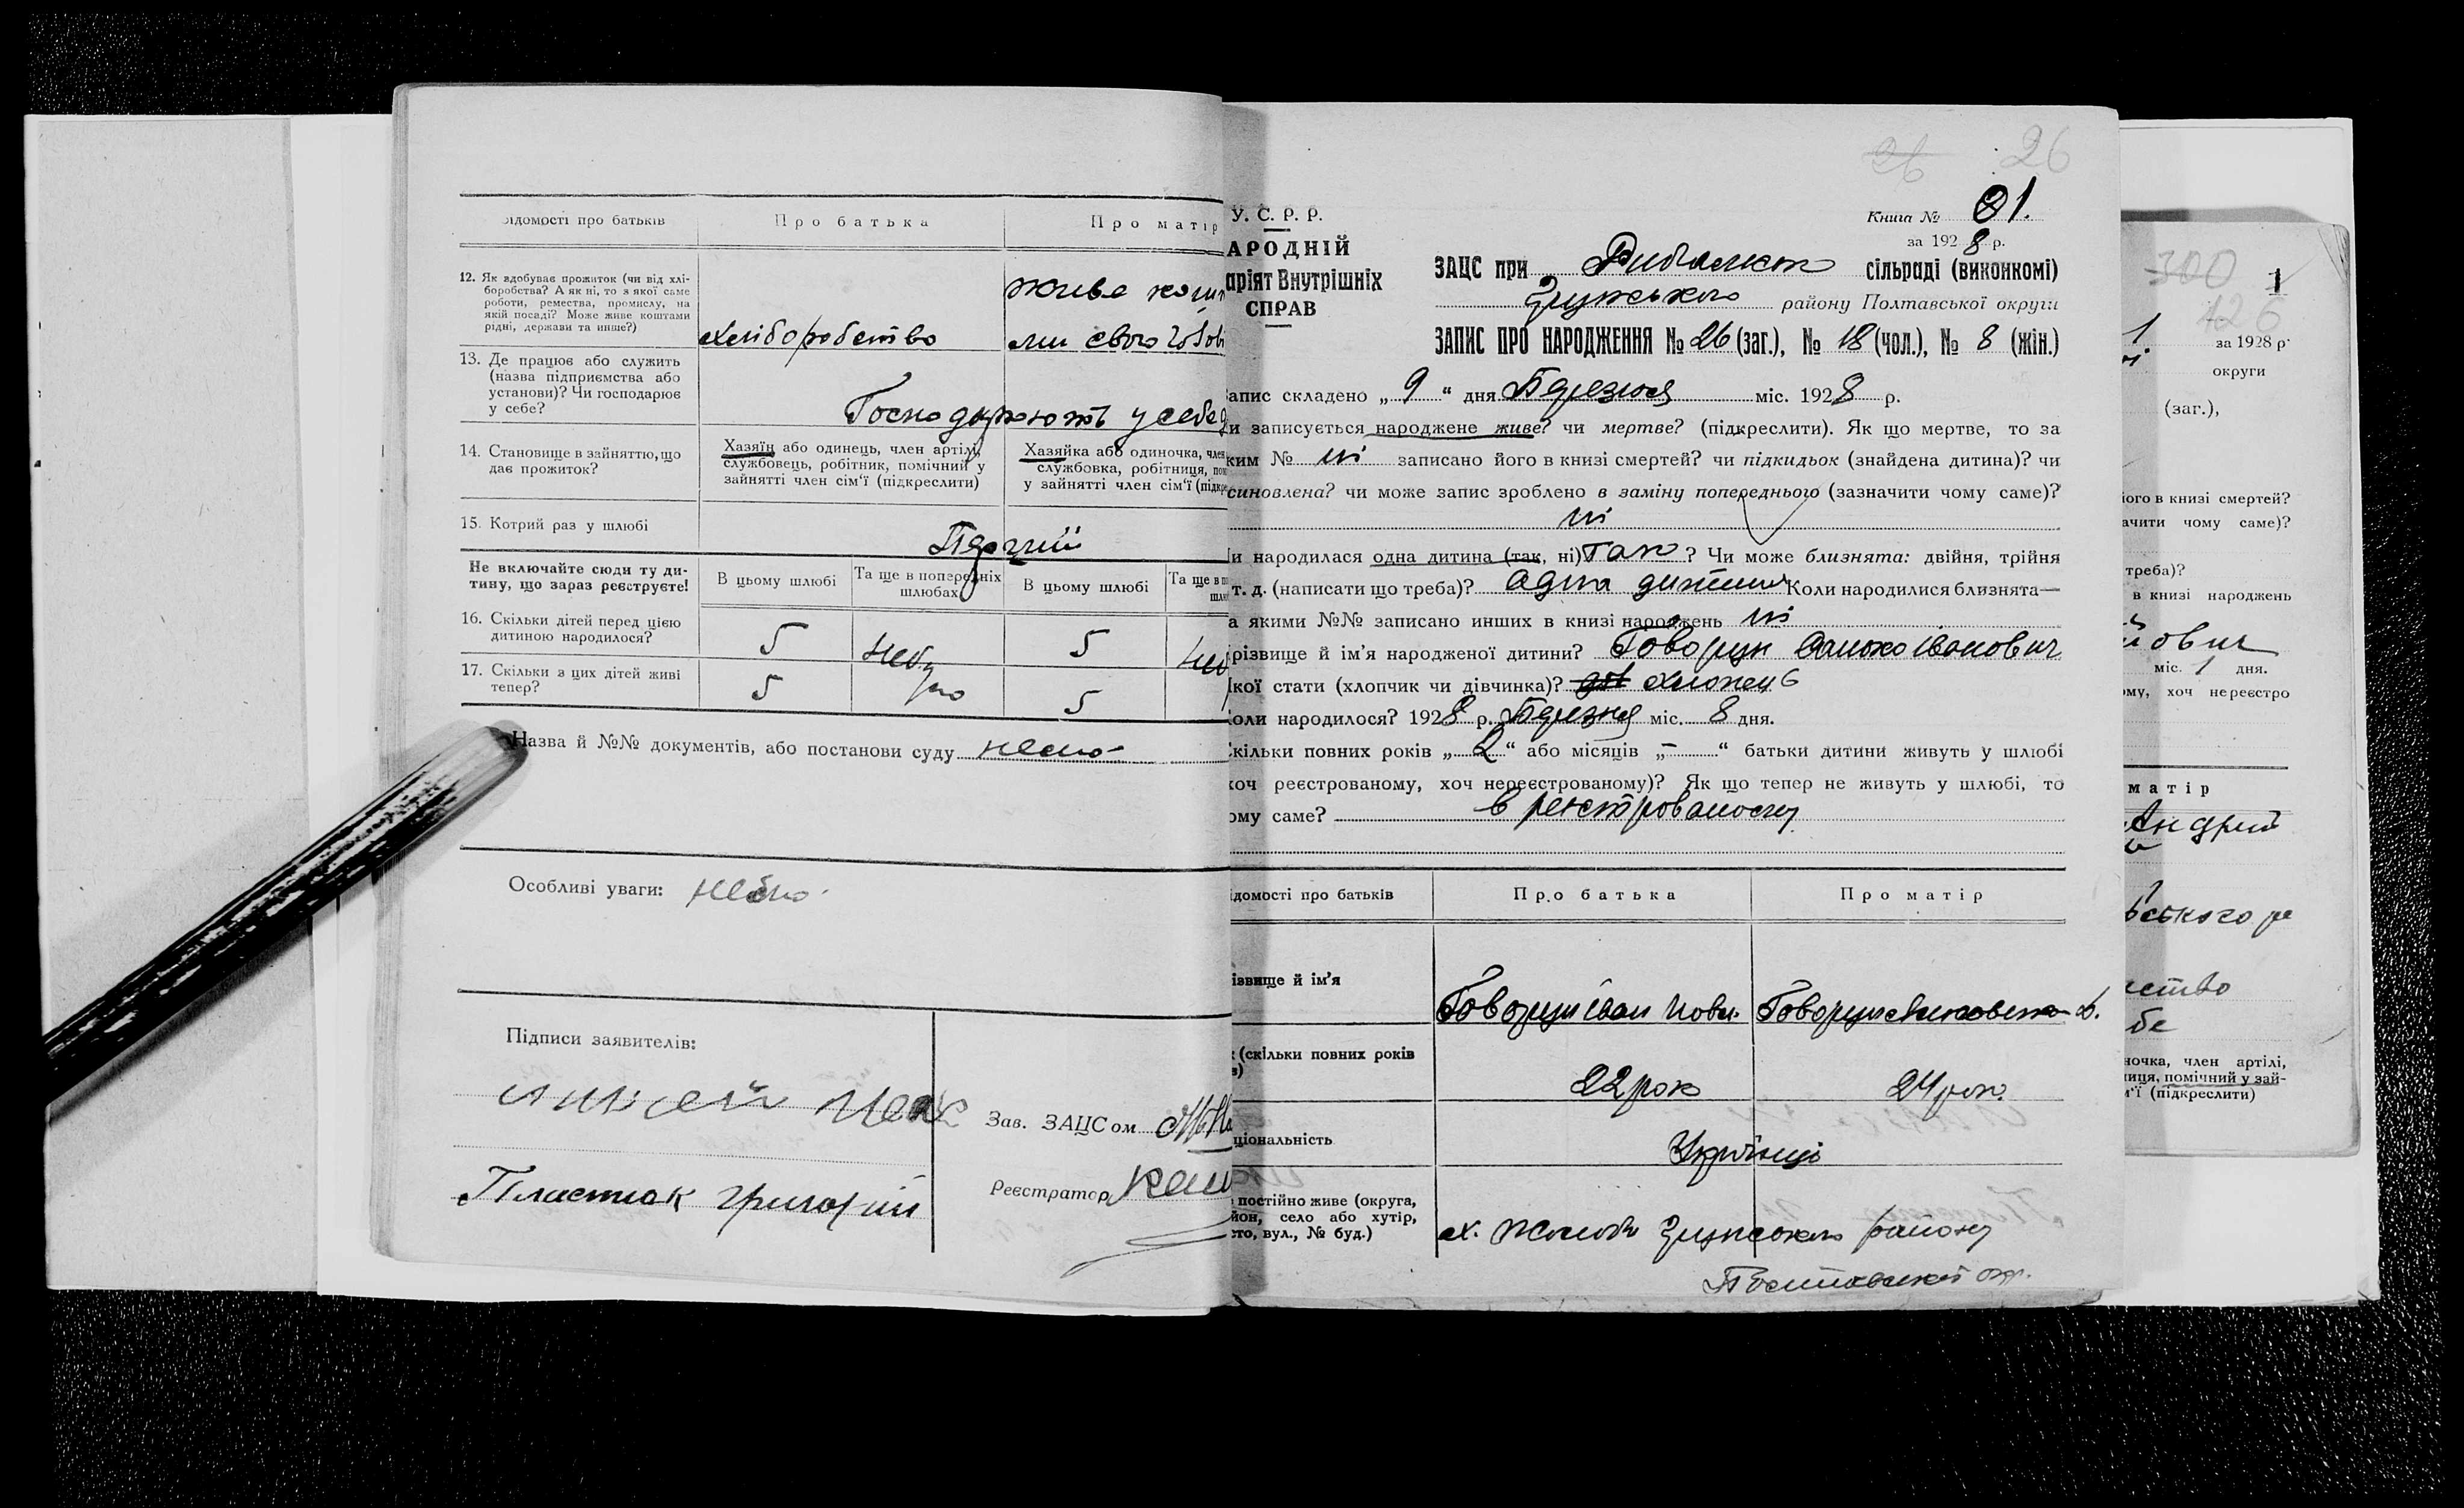 ідомості про батьків
Про батька
Про матір
12. Як здобуває прожиток (чи від хлі-
боробства? А як ні, то з якої саме
роботи, ремества, промислу, на
якій посаді? Може живе коштами
рідні, держави та инше?)
хліборобство
живе кошт
ми свого чолові
13. Де працює або служить
(назва підприємства або
установи)? Чи господарює
у себе?
Господарюють у себе
14. Становище в зайняттю, що
дає прожиток?
Хазяїн або одинець, член артілі,
службовець, робітник, помічний у
зайнятті член сім'ї (підкреслити)
Хазяйка або одиночка, член
службовка, робітниця, пом
у зайнятті член сім'ї (підкре
15. Котрий раз у шлюбі
Перший
Не включайте сюди ту ди-
тину, що зараз реєструєте!
В цьому шлюбі
Та ще в попередніх
шлюбах
В цьому шлюбі
Та ще в п
шлю
16. Скільки дітей перед цією
дитиною народилося?
5
5
17. Скільки з цих дітей живі
тепер?
5
5
Назва й №№ документів, або постанови суду
Особливі уваги:
Підписи заявителів:
Пластюк Григорій
Зав. ЗАЦСом
Реєстратор
26 26
У. С. Р. Р.
АРОДНІЙ
аріят Внутрішніх
СПРАВ
Книга № 01.
за 1928 р.
ЗАЦС при сільраді (виконкомі)
району Полтавської округи
ЗАПИС ПРО НАРОДЖЕННЯ № 26 (заг.), № 18 (чол.), № 8 (жін.)
апис складено „9“ дня Березня міс. 1928 р.
и записується народжене живе? чи мертве? (підкреслити). Як що мертве, то за
ким № ні записано його в книзі смертей? чи підкидьок (знайдена дитина)? чи
синовлена? чи може запис зроблено в заміну попереднього (зазначити чому саме)?
ні
и народилася одна дитина (так, ні) так? Чи може близнята: двійня, трійня
т. д. (написати що треба)? Одна дитина Коли народилися близнята—
а якими №№ записано инших в книзі народжень ні
різвище й ім'я народженої дитини? Говорун Іванович
кої стати (хлопчик чи дівчинка)? хлопець
оли народилося? 1928 р. Березня міс. 8 дня.
кільки повних років „2“ або місяців „–“ батьки дитини живуть у шлюбі
хоч реєстрованому, хоч нереєстрованому)? Як що тепер не живуть у шлюбі, то
ому саме? в реєстрованому
ідомості про батьків
Про батька
Про матір
ізвище й ім'я
Говорун Іван
Говорун
(скільки повних років
22 рок
24 рок.
ціональність
Українці
постійно живе (округа,
йон, село або хутір,
сто, вул., № буд.)
х. району
Полтавської окр.
300
126
1
1
за 1928 р.
округи
(заг.),
ого в книзі смертей?
ачити чому саме)?
треба)?
в книзі народжень
ович
міс. 1 дня.
ому, хоч нереєстро
матір
Андрій
ського
ство
бе
ночка, член артілі,
иця, помічний у зай-
'ї (підкреслити)